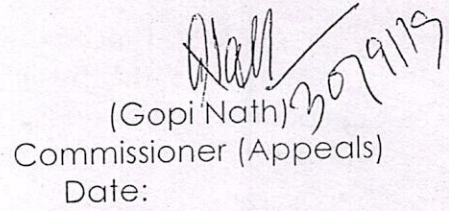 30/9/19
(Gopi Nath)
Commissioner (Appeals)
Date: